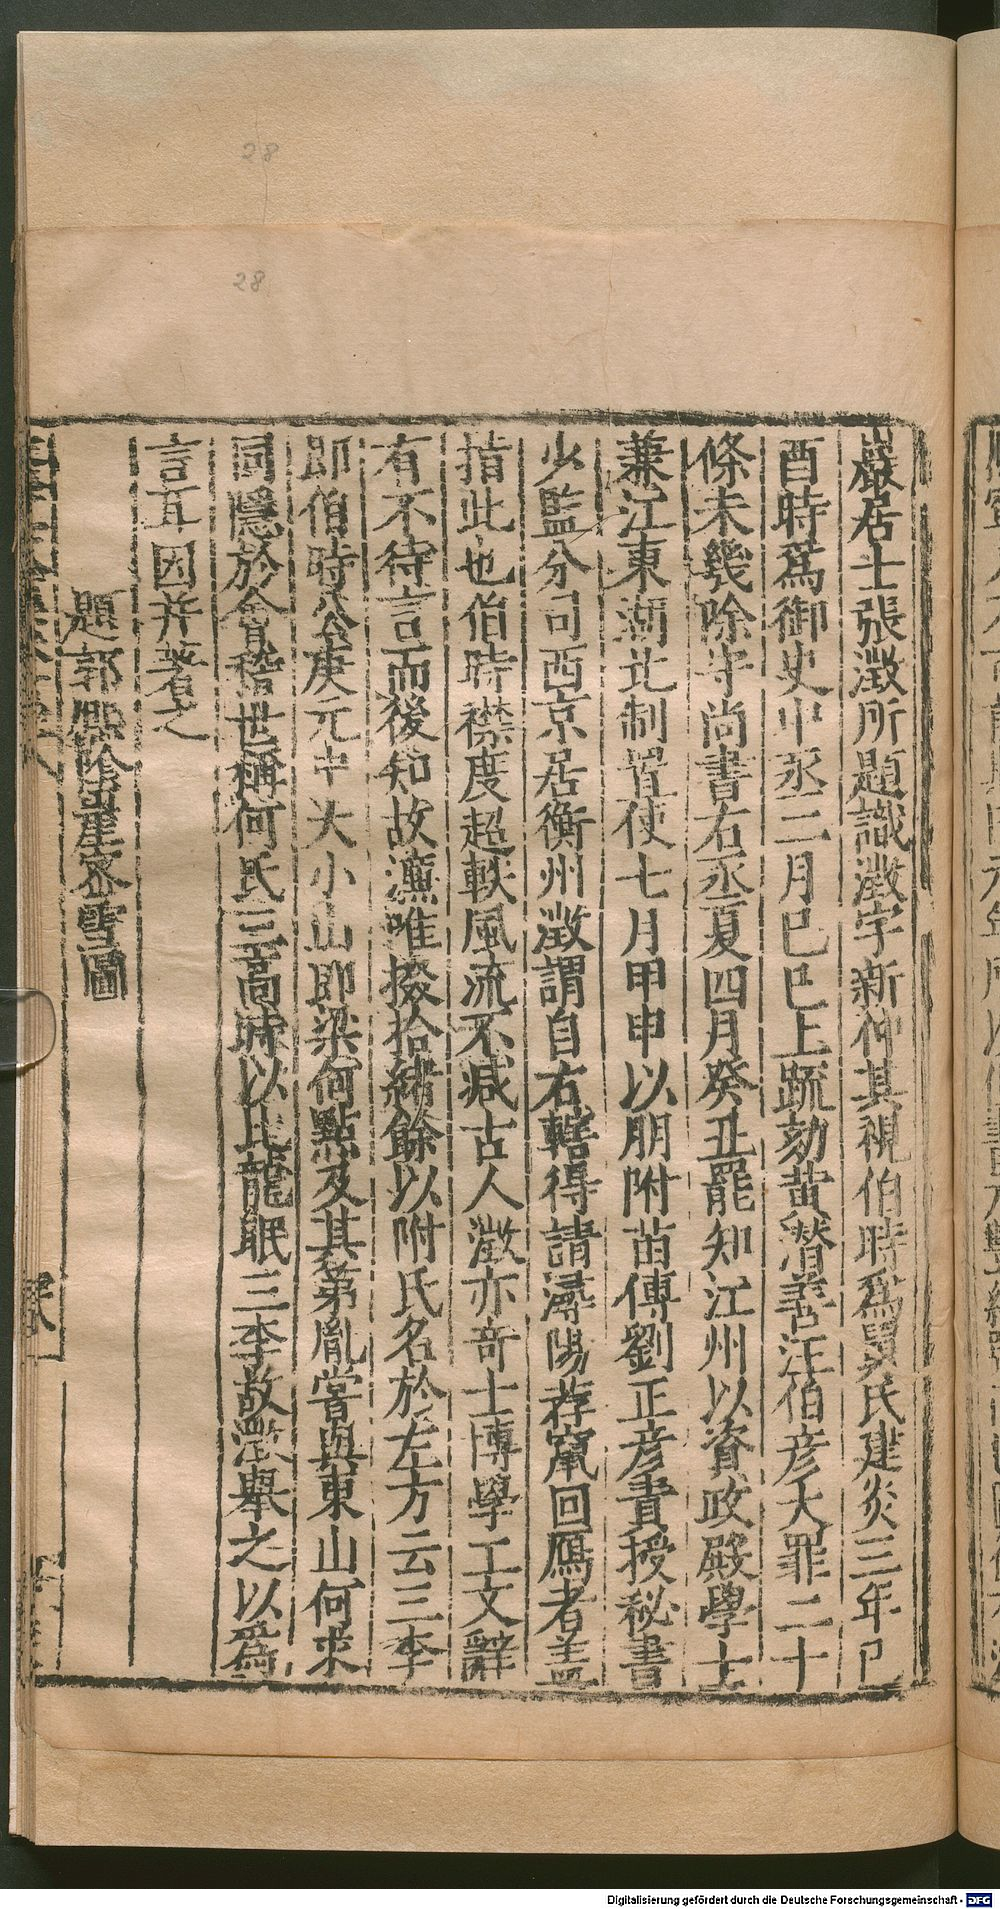 28
28
巖居士張澂所題識澂字新仲其視伯時爲舅氏建炎三年己
酉時爲御史中丞二月己巳上疏劾黃潛善汪伯彥大罪二十
條未幾除守尚書右丞夏四月癸丑罷知江州以資政殿學士
兼江東湖北制置使七月甲申以朋附苗傅劉正彥責授秘書
少監分司西京居衡州澂謂自右轄得請潯陽荐竄回鴈者盖
指此也伯時襟度超軼風流不减古人澂亦竒士博學工文辭
有不待言而後知故濂唯掇拾緒餘以附氏名於左方云三李
即伯時公庚元中大小山即梁何點及其弟胤嘗與東山何求
同隱於會稽世稱何氏三高時以比龍眠三李故澂舉之以爲
言耳因并著之
題郭熙陰崖密雪圖
Digitalisierung gefördert durch die Deutsche Forschungsgemeinschaft - DFG